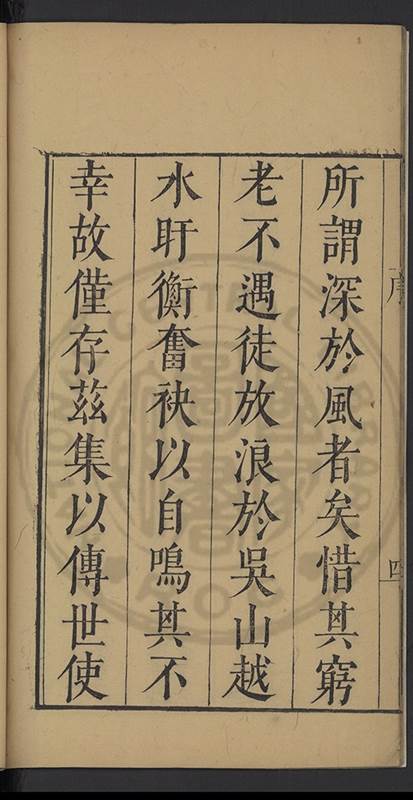 所謂深於風者矣惜其窮
老不遇徒放浪於吳山越
水盱衡奮袂以自鳴其不
幸故僅存茲集以傳世使
四